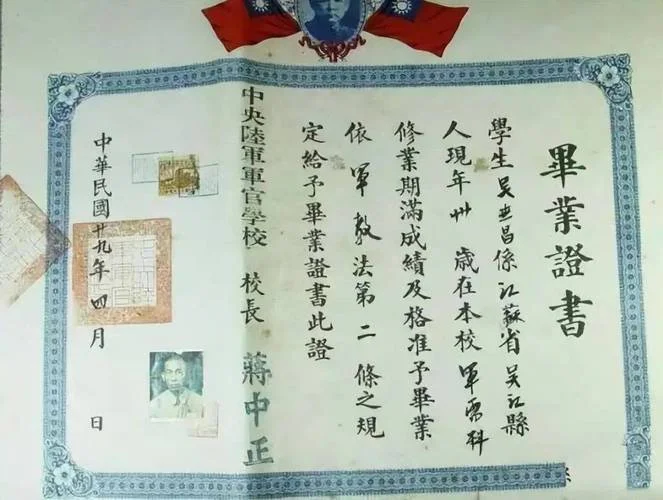 畢業證書
學生吳昌係江蘇省吳江縣
人現年卅歲在本校軍需科
修業期滿成績及格准予畢業
依軍教法第二條之規
定給予畢業證書此證
中央陸軍軍官學校 校長 蔣中正
中華民國廿九年四月 日